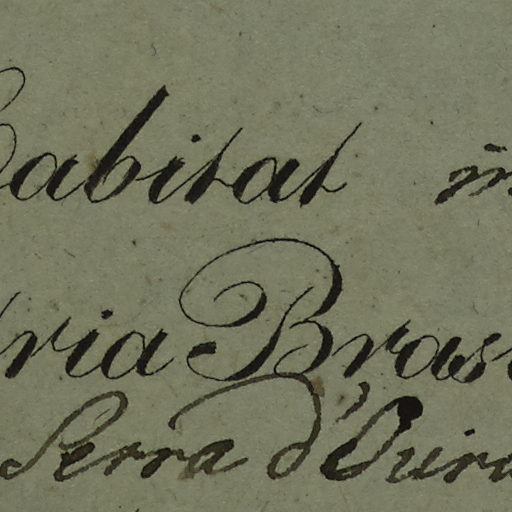 Habitat in
ria Bras
Serra d'Ouro